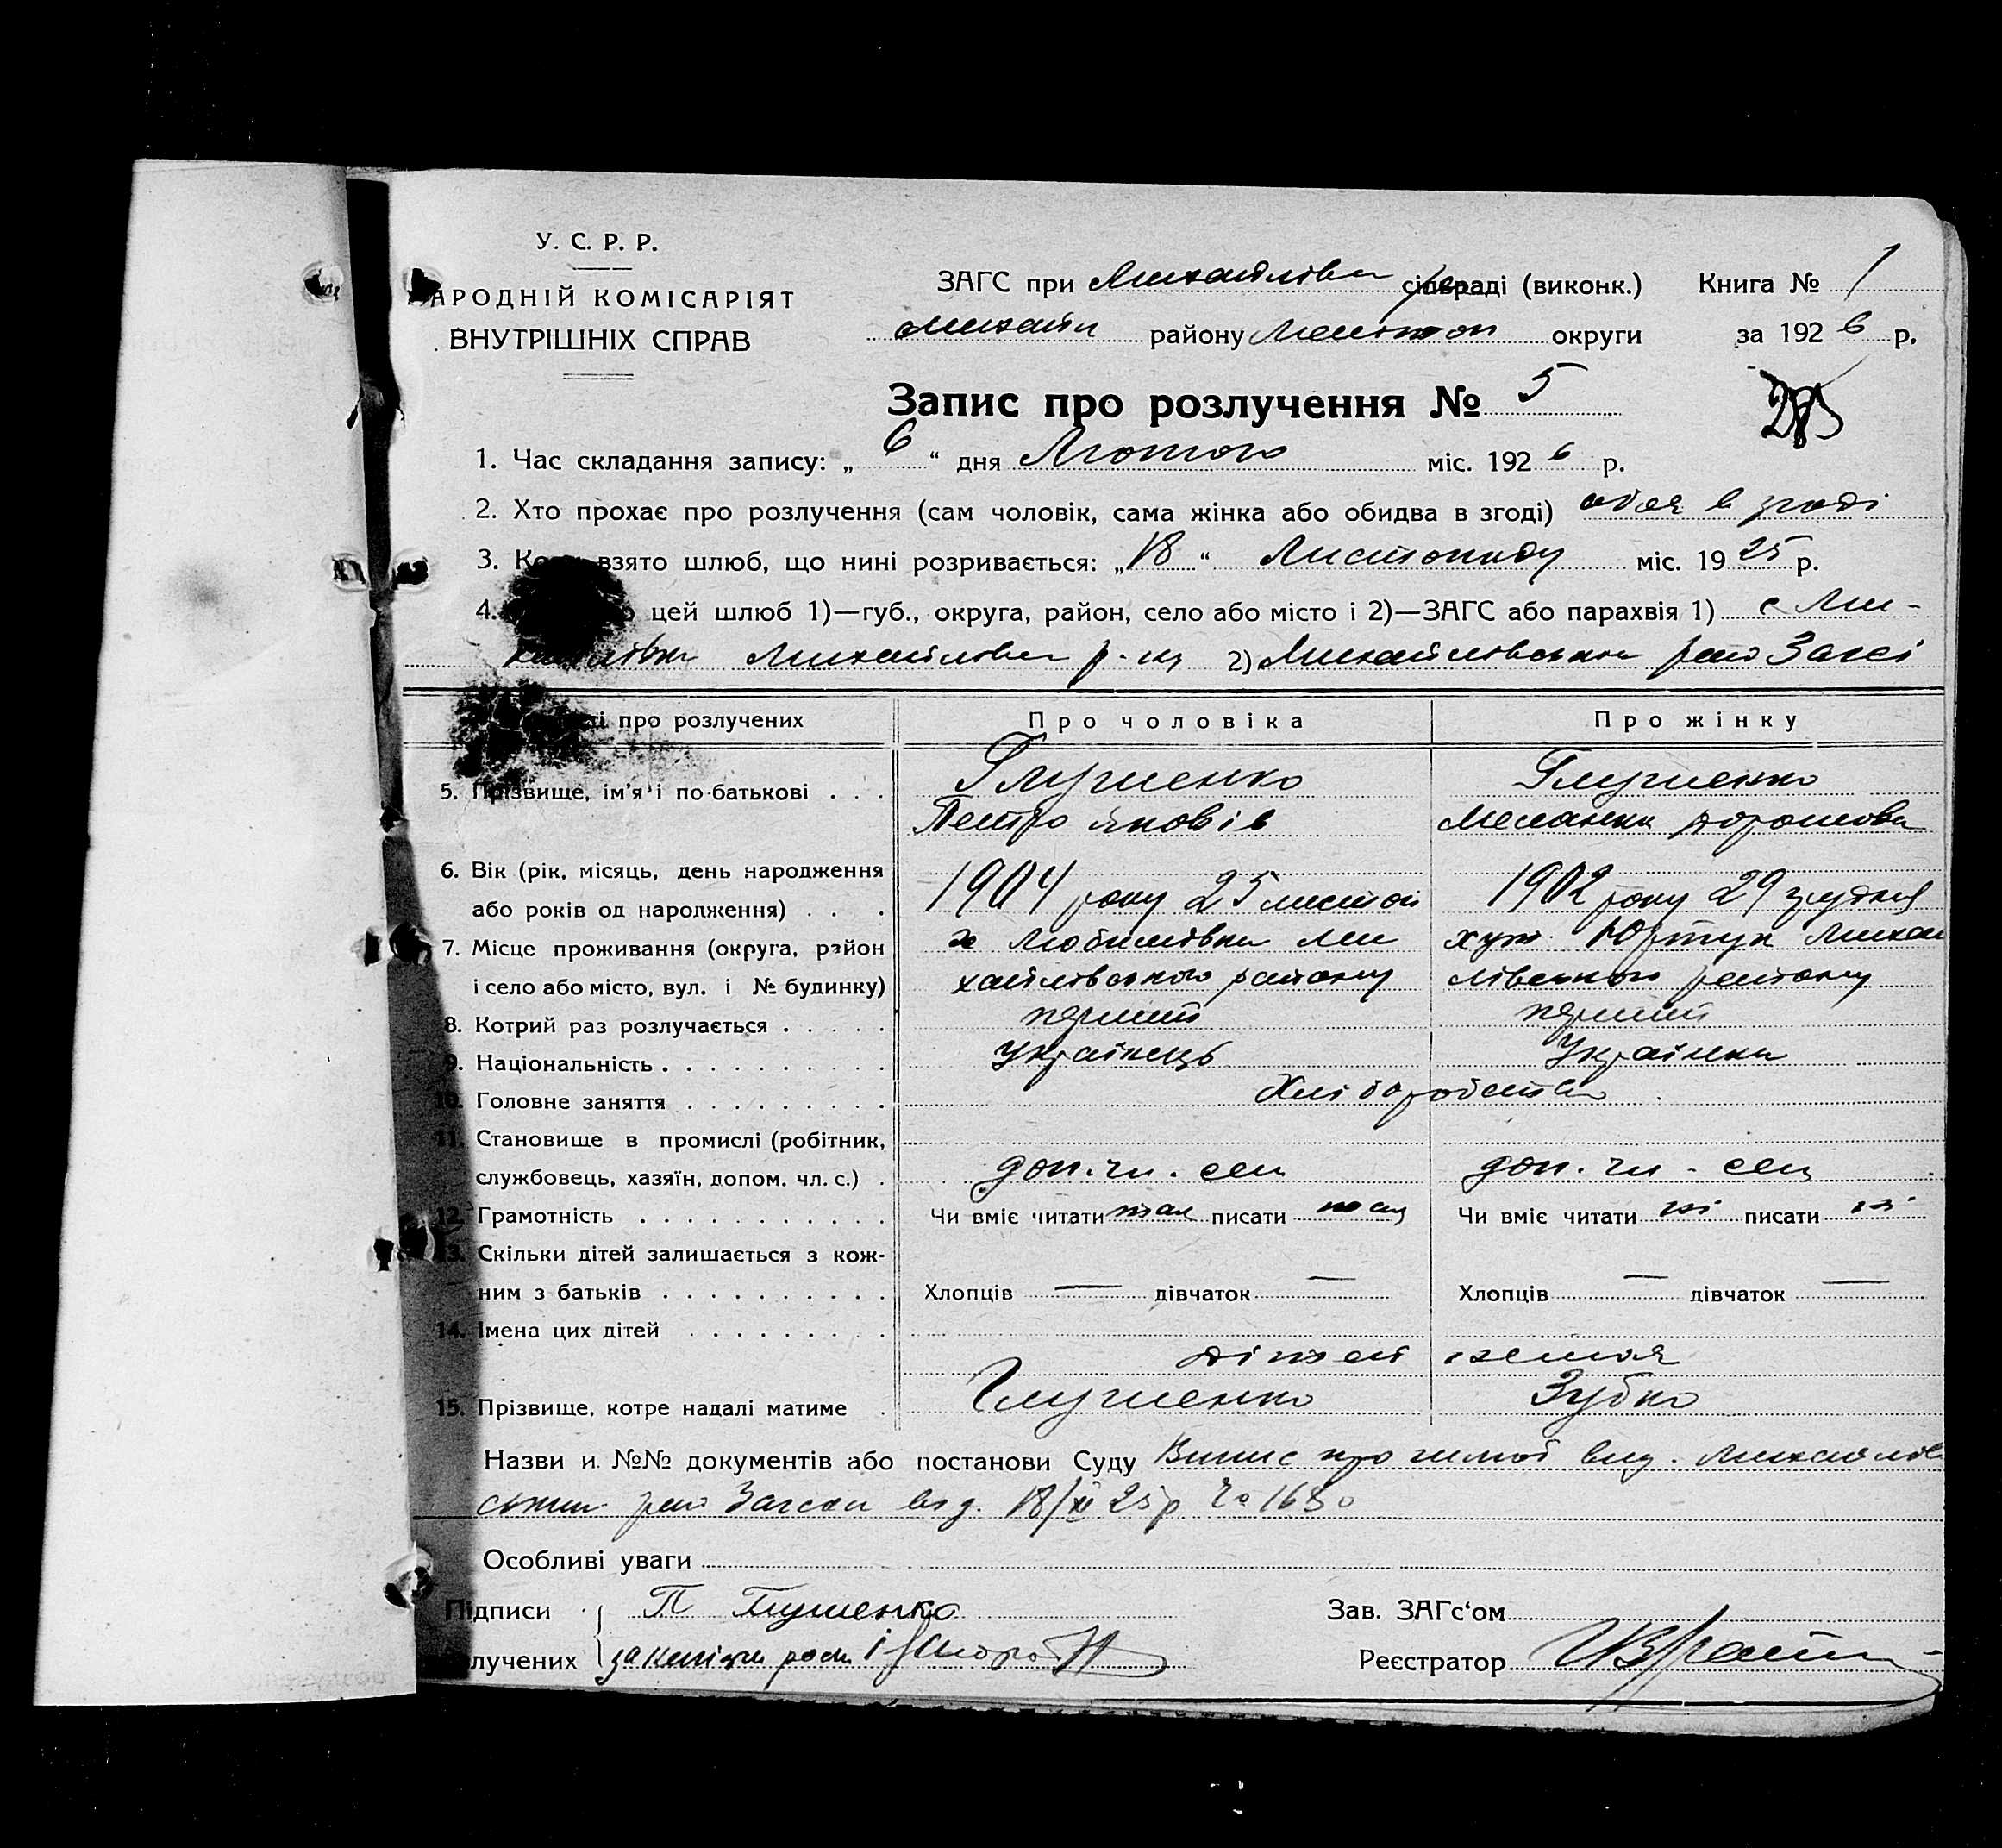 У. С. Р. Р.
АРОДНІЙ КОМІСАРІЯТ
ВНУТРІШНІХ СПРАВ
ЗАГС при Михайлівсь сільраді (виконк.) Книга № 1
Михайл району Мелітоп округи за 1926 р.
Запис про розлучення № 5
1. Час складання запису: „6“ дня Лютого міс. 1926 р.
2. Хто прохає про розлучення (сам чоловік, сама жінка або обидва в згоді) обоє в згоді
3. взято шлюб, що нині розривається: „18“ Листопаду міс. 1925 р.
4. цей шлюб 1)—губ., округа, район, село або місто і 2)—ЗАГС або парахвія 1) с Ми-
хайлівка Михайлівсь р-ну 2) Михайлівським рай Загсі
про розлучених Про чоловіка Про жінку
5. Прізвище, ім'я і по-батькові . . . Глущенко Глущенко
Петро Яковів Меланка
6. Вік (рік, місяць, день народження
або років од народження) . . . 1904 року 25 листоп 1902 року 29 грудня
7. Місце проживання (округа, район х Любимівка Ми хут. Юртук Михай
і село або місто, вул. і № будинку) хайлівського району лівського району
8. Котрий раз розлучається . . . . . перший перший
9. Національність . . . . . . . . . . Українець Українка
10. Головне заняття . . . . . . . . . Хліборобство
11. Становище в промислі (робітник,
службовець, хазяїн, допом. чл. с.) . доп. чл. сем доп. чл. сем
12. Грамотність . . . . . . . . . . . Чи вміє читати так писати Чи вміє читати ні писати ні
13. Скільки дітей залишається з кож-
ним з батьків . . . . . . . . . . Хлопців — дівчаток — Хлопців — дівчаток —
14. Імена цих дітей . . . . . . . . .
дітей немає
15. Прізвище, котре надалі матиме . Глущенко Зубко
Назви и №№ документів або постанови Суду Випис про шлюб вид. Михайлів
ським рай Загсом від 18/XI 25р № 1630
Особливі уваги
Підписи П Глущенко Зав. ЗАГс‘ом
лучених Реєстратор